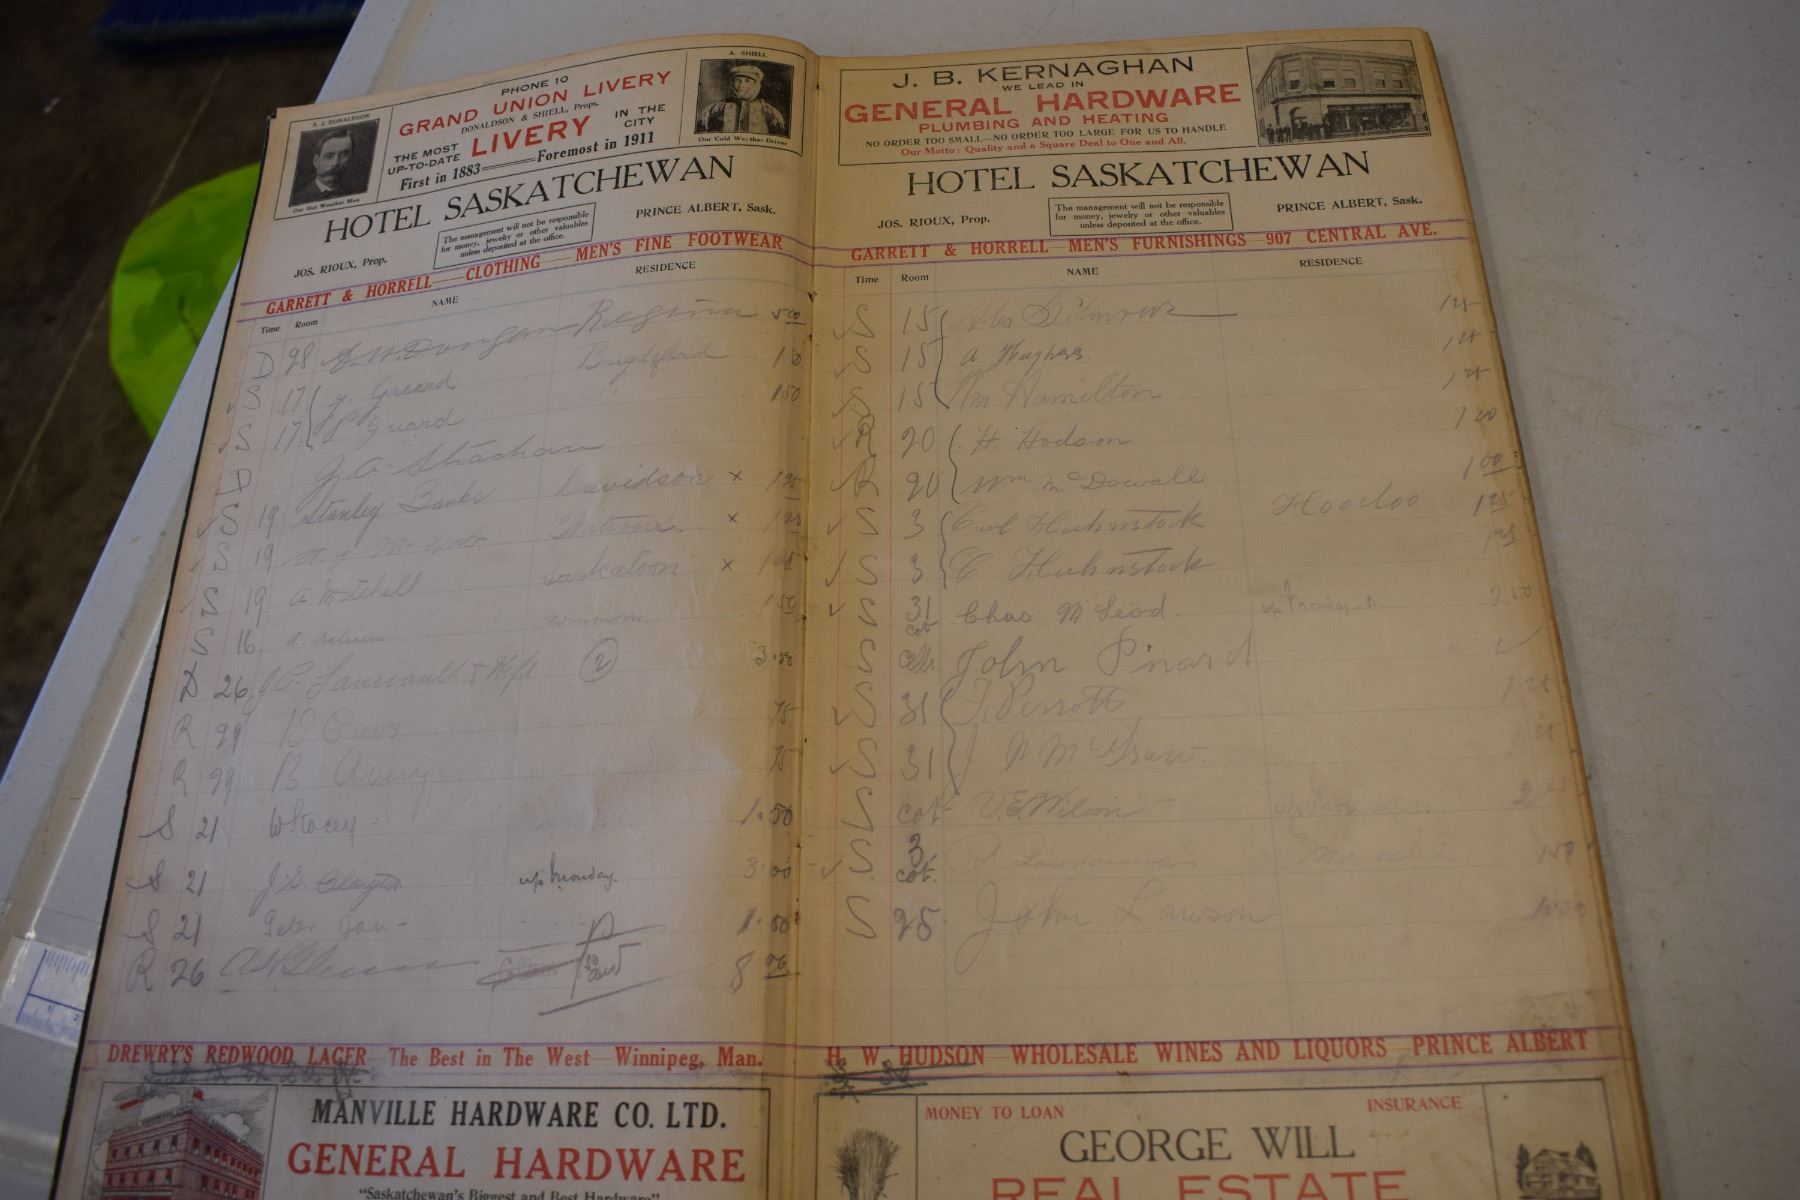 S. J. DONALDSON
Our Hot Weather Man
PHONE 10
GRAND UNION LIVERY
DONALDSON & SHIELL, Props.
THE MOST UP-TO-DATE LIVERY IN THE CITY
First in 1883 Foremost in 1911
A. SHIELL
Our Cold Weather Driver
HOTEL SASKATCHEWAN
JOS. RIOUX, Prop.
The management will not be responsible
for money, jewelry or other valuables
unless deposited at the office.
PRINCE ALBERT, Sask.
GARRETT & HORRELL CLOTHING MEN'S FINE FOOTWEAR
Time Room NAME RESIDENCE
D 28 Regina 5.00
S 17 Greard
S 17 Guard 1.50
J. A. Strachan
S 19 Stanley Banks Davidson x 1.25
S 19 x 1.25
S 19 A Mitchell Saskatoon x
S 16 A. 1.50
D 26 & Wife 2 3.50
R 29 75
R 29 B Avery 75
S 21 W Stacey 1.50
S 21 J. S. Clayton up Monday. 3.00
S 21 Peter 1.50
R 26 8
DREWRY'S REDWOOD LAGER The Best in The West Winnipeg, Man.
MANVILLE HARDWARE CO. LTD.
GENERAL HARDWARE
"Saskatchewan's Biggest and Best Hardware"
J. B. KERNAGHAN
WE LEAD IN
GENERAL HARDWARE
PLUMBING AND HEATING
NO ORDER TOO SMALL—NO ORDER TOO LARGE FOR US TO HANDLE
Our Motto: Quality and a Square Deal to One and All.
HOTEL SASKATCHEWAN
JOS. RIOUX, Prop.
The management will not be responsible
for money, jewelry or other valuables
unless deposited at the office.
PRINCE ALBERT, Sask.
GARRETT & HORRELL MEN'S FURNISHINGS 907 CENTRAL AVE.
Time Room NAME RESIDENCE
S 15 1.25
S 15 A Hughes 1.25
S 15 Wm Hamilton 1.25
R 20 H. Hodson 1.00
R 20 Wm McDowall 1.00
S 3 Carl Huhnstock Hoodoo 1.25
S 3 C Huhnstock 1.25
S 31 cot Chas McLeod. up Monday
S John Pinard
S 31 J. Perrott 1.25
S 31 J. McGraw. 1.25
S cot V. E. Wilson
S 3 cot. 1.50
S 25 John Lawson
H. W. HUDSON WHOLESALE WINES AND LIQUORS PRINCE ALBERT
MONEY TO LOAN INSURANCE
GEORGE WILL
REAL ESTATE